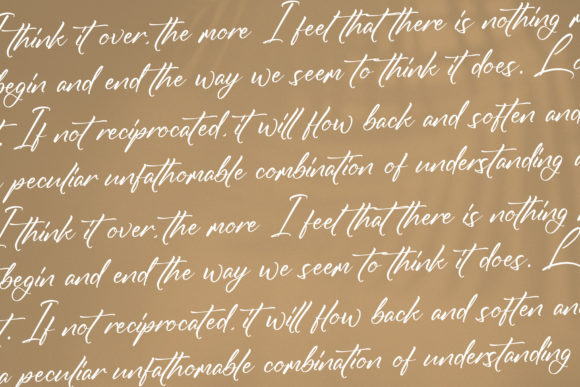 I think it over. the more I feel that there is nothing
begin and end the way we seem to think it does.
If not reciprocated. it will flow back and soften and
peculiar unfathomable combination of understanding
I think it over. the more I feel that there is nothing
begin and end the way we seem to think it does.
If not reciprocated. it will flow back and soften and
a peculiar unfathomable combination of understanding